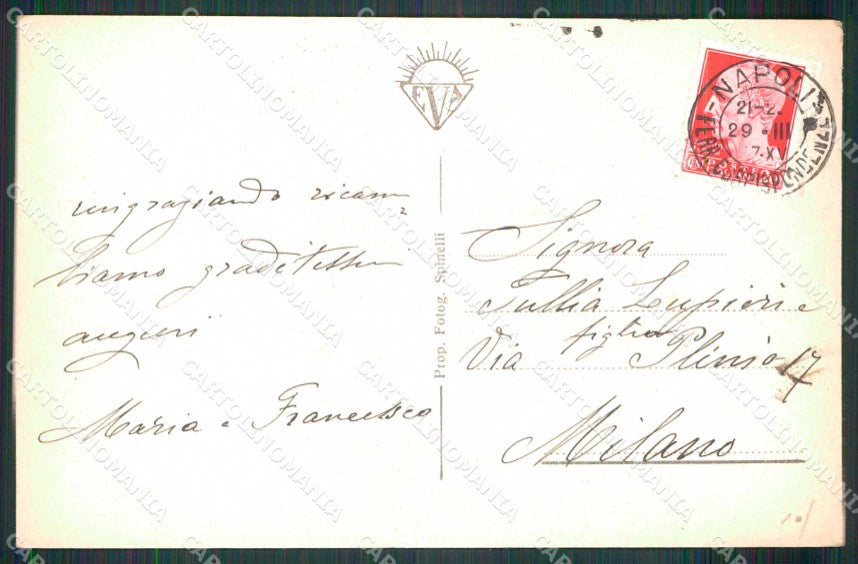 EVA
ringraziando ricam
biamo graditissimi
auguri
Maria e Francesco
Prop. Fotog. Spinelli
NAPOLI
21-2
29 · III
XV
Signora
Tullia Lupieri e
figlia
Via Plinio 17
Milano
CARTOLINOMANIA